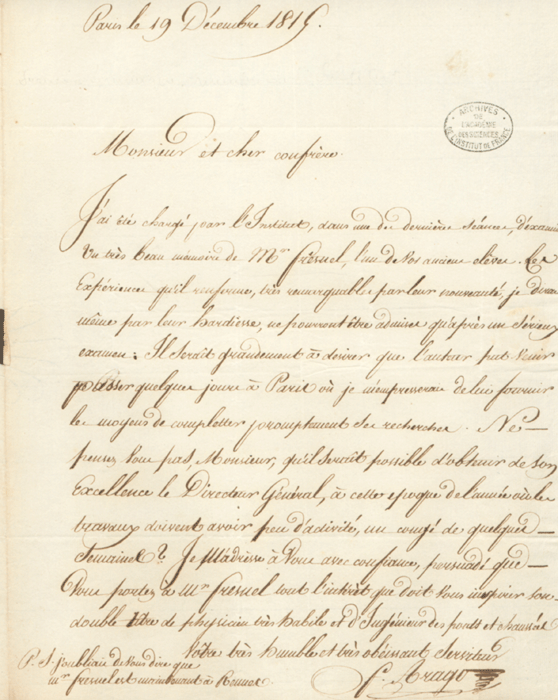 Paris le 19 Décembre 1815.
ARCHIVES
DE
L'ACADÉMIE
DES SCIENCES
DE L'INSTITUT DE FRANCE
Monsieur et cher confrère.
J'ai été chargé par l'Institut, dans une des dernière séance, d'examin
un très beau mémoire de Mr fresnel, l'un de vos anciens élèves. Les
Expériences qu'il renferme, très remarquables par leur nouveauté, je dirai
même par leur hardiesse, ne pourront être admises qu'après un sérieux
examen: Il serait grandement à désirer que l'auteur put venir
passer quelques jours à Paris où je m'empresserai de lui fournir
les moyens de completter promptement ses recherches. Ne
pensez vous pas, Monsieur, qu'il serait possible d'obtenir de son
Excellence le Directeur Général, à cette epoque de l'année où les
travaux doivent avoir peu d'activité, un congé de quelques
Semaines? Je m'adresse à vous avec confiance, persuadé que
vous portez à Mr fresnel tout l'intérêt que doit vous inspirer son
double titre de physicien très habile et d'Ingénieur des ponts et chaussées
Votre très humble et très obéissant Serviteur
f. Arago
P. S. j'oubliais de vous dire que
mr fresnel est maintenant à Rennes.